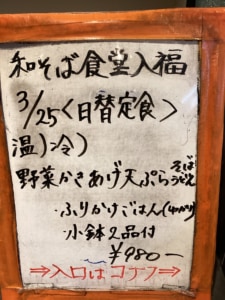 和そば食堂入福
3/25<日替定食>
温)冷)
野菜かきあげ天ぷら そば うどん
・ふりかけごはん(ゆかり)
・小鉢2品付
¥980-
⇒入口はコチラ⇒